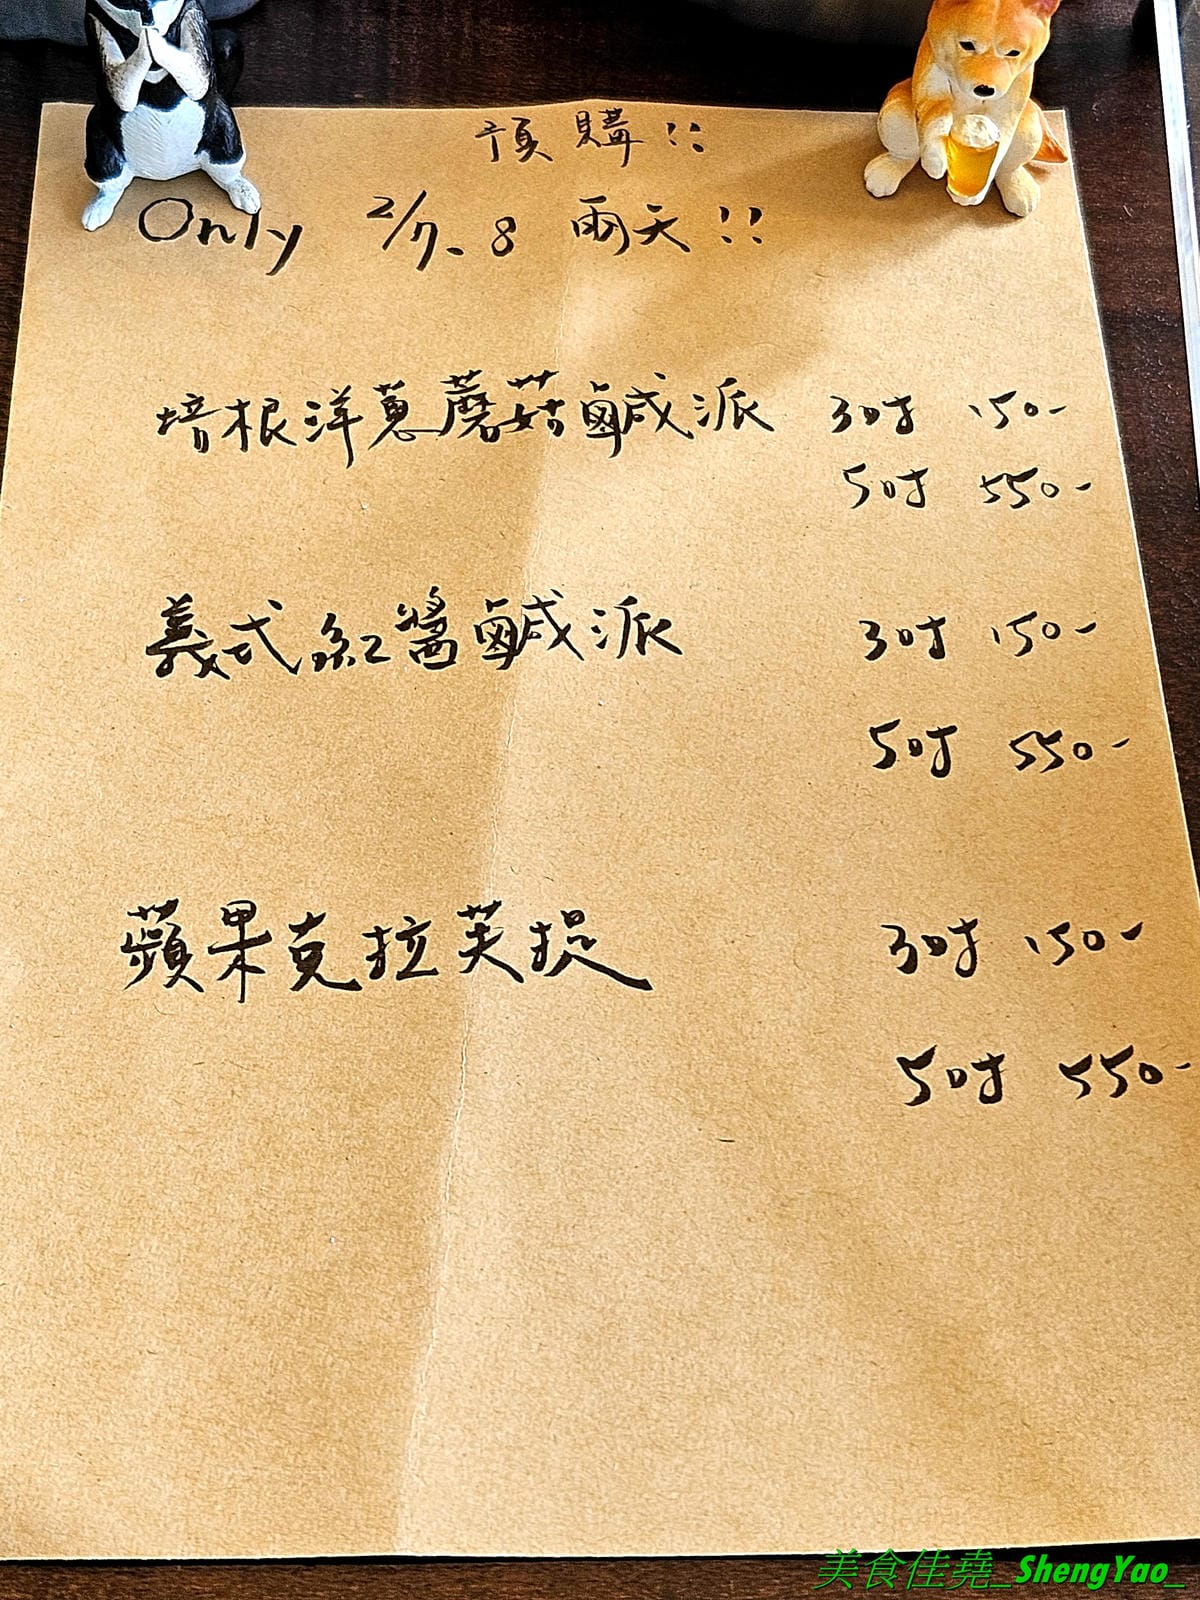 預購!!
Only 2/7、8 兩天!!
培根洋蔥蘑菇鹹派 3吋 150-
5吋 550-
義式紅醬鹹派 3吋 150-
5吋 550-
蘋果克拉芙提 3吋 150-
5吋 550-
美食佳堯_ShengYao_